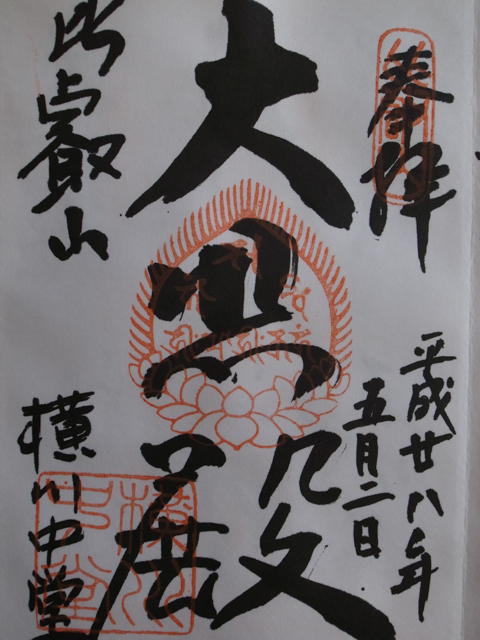 奉拝
平成廿八年
五月二日
大悲殿
比叡山
横川中堂